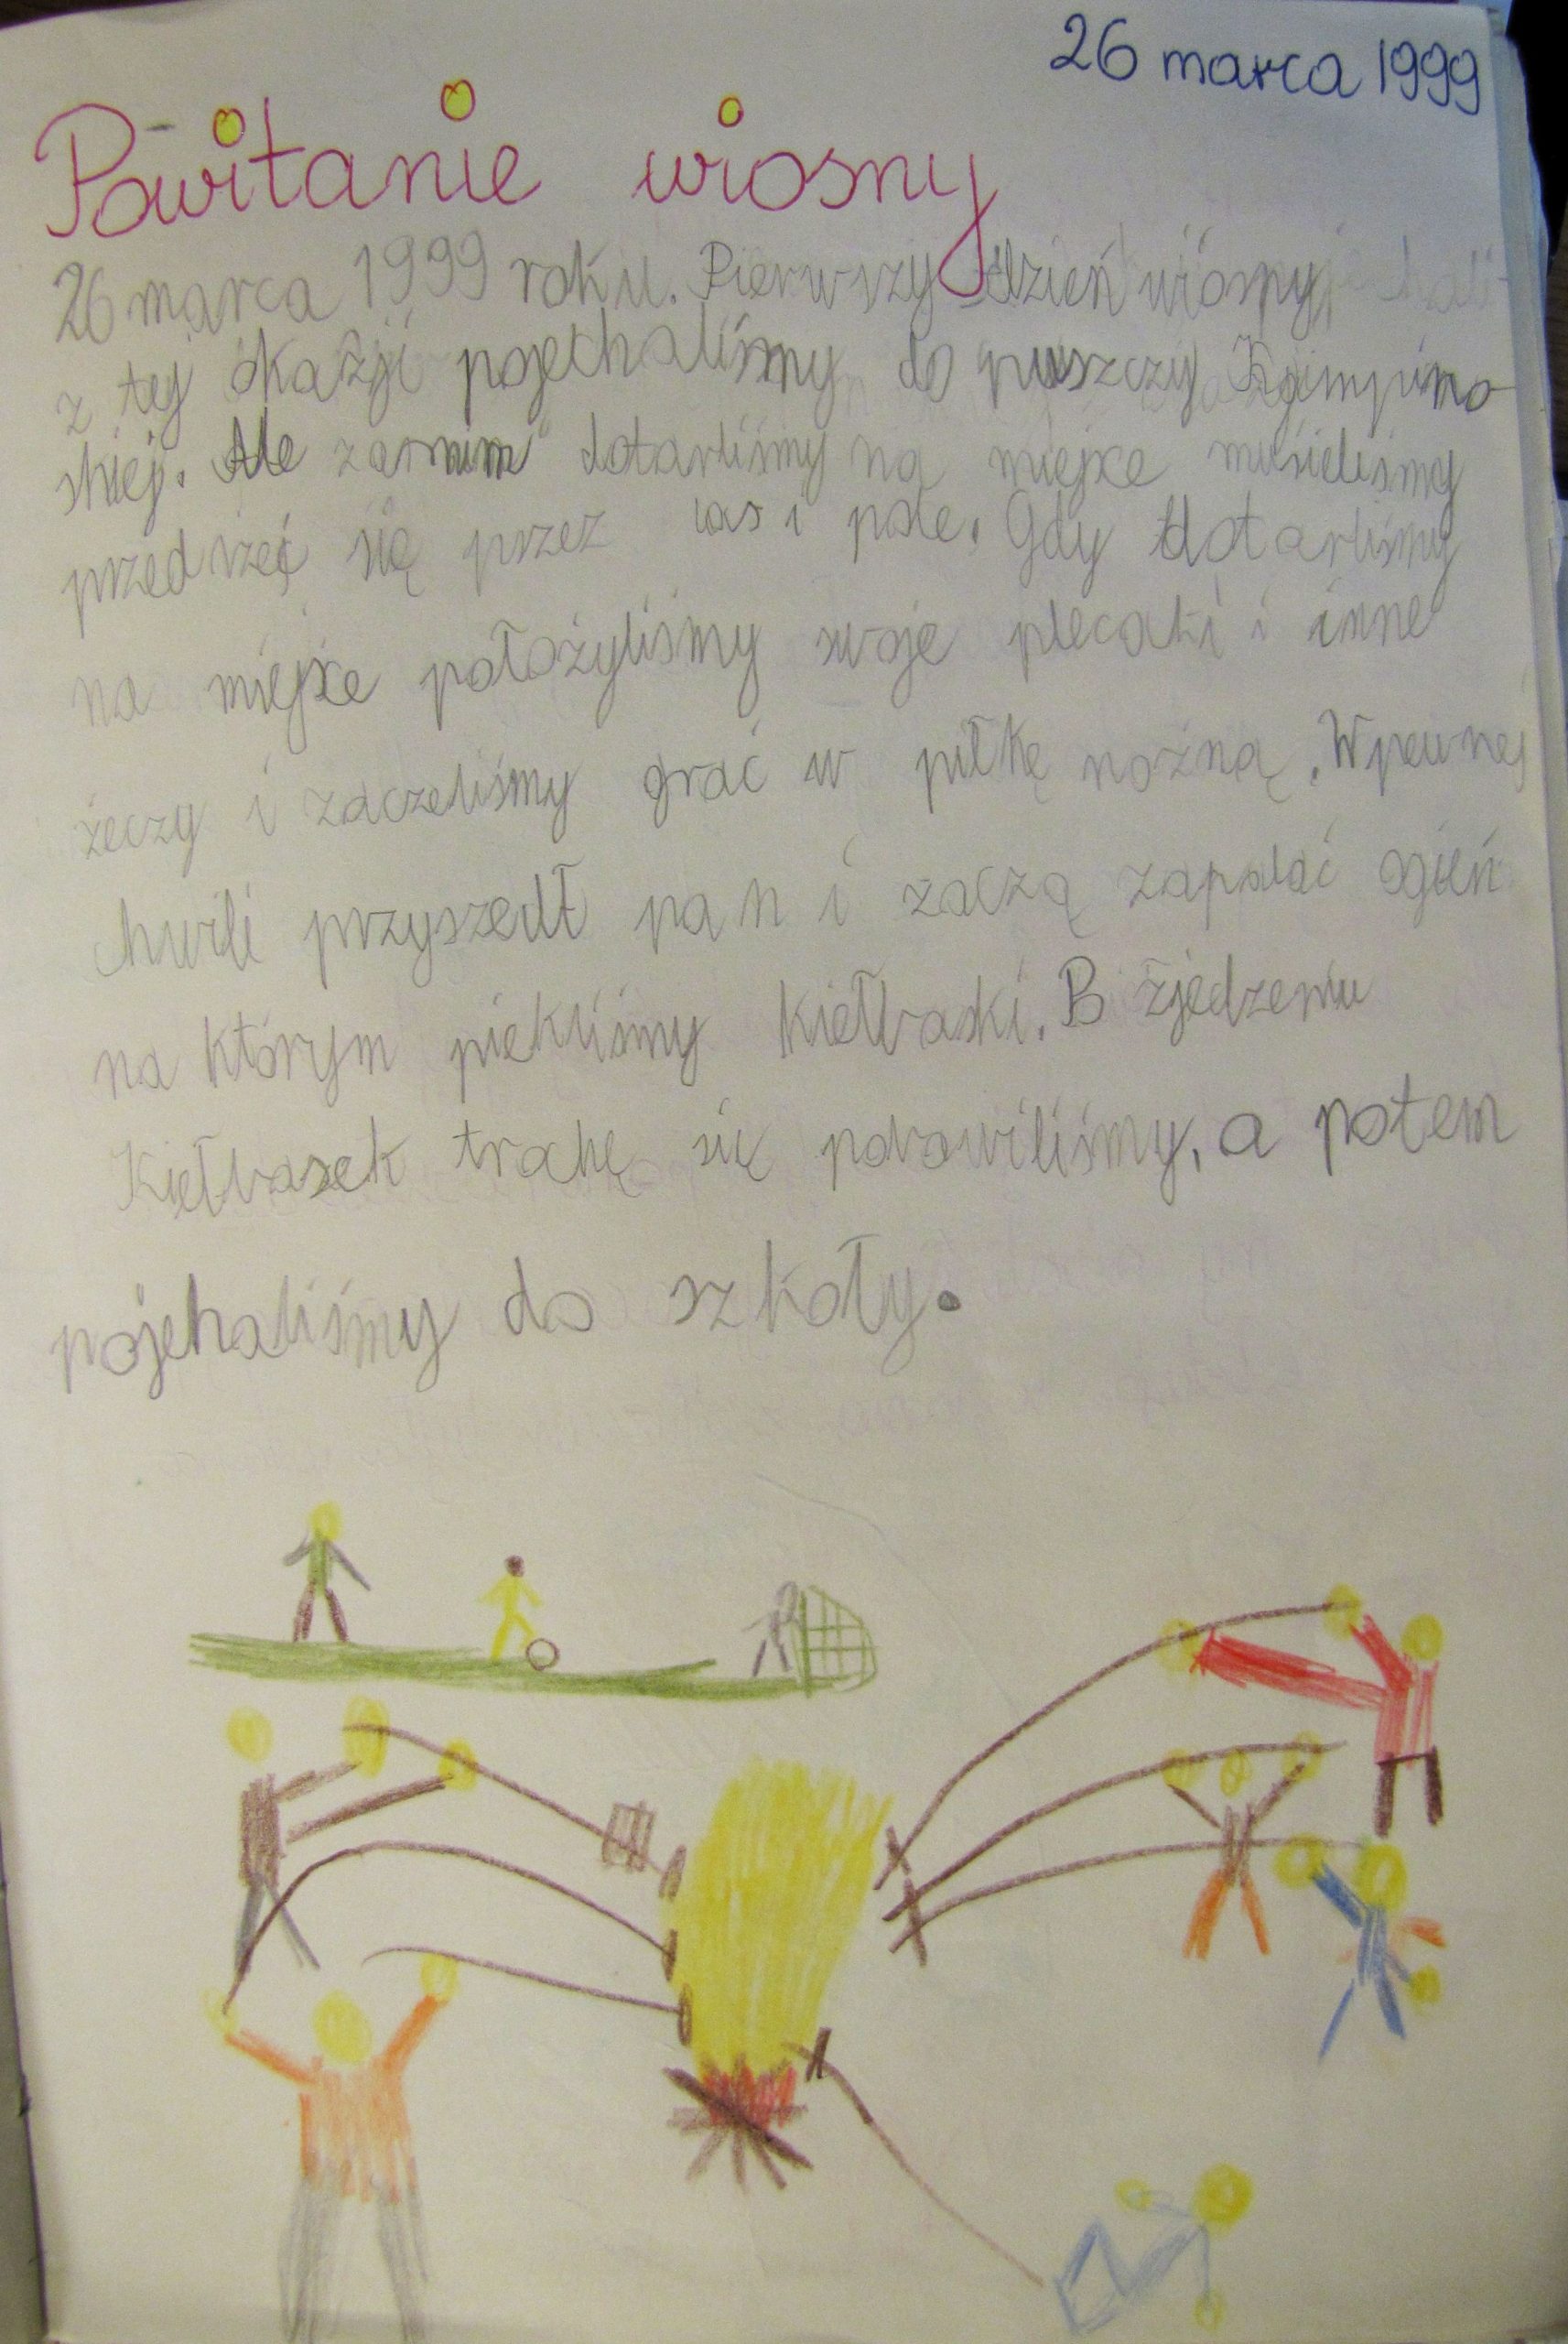 26 marca 1999
Powitanie wiosny
26 marca 1999 roku. Pierwszy dzień wiosny,
z tej okazji pojechaliśmy do puszczy Kampino-
skiej. Ale zanim dotarliśmy na miejsce musieliśmy
przedrzeć się przez las i pole. Gdy dotarliśmy
na miejsce położyliśmy swoje plecaki i inne
żeczy i zaczeliśmy grać w piłkę nożną. W pewnej
chwili przyszedł pan i zaczą zapalać ogień
na którym piekliśmy kiełbaski. Po zjedzeniu
kiełbasek trochę się pobawiliśmy, a potem
pojehaliśmy do szkoły.